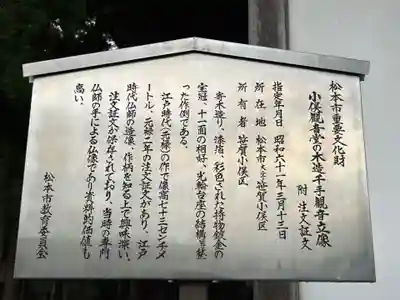 松本市重要文化財
小俣観音堂の木造千手観音立像
附 注文証文
指定年月日 昭和六十一年三月十三日
所在地 松本市大字笹賀小俣区
所有者 笹賀小俣区
寄木造り、漆箔、彩色された持物鍍金の
宝冠、十一面の相好、光輪台座の結構も整
った作例である。
江戸時代(元禄)の作で像高七十三センチメ
ートル、元禄二年の注文証文があり、江戸
時代仏師の造像、作柄を知る上で興味深い。
注文証文が保存されており、当時の専門
仏師の手による仏像であり資料的価値も
高い。
松本市教育委員会